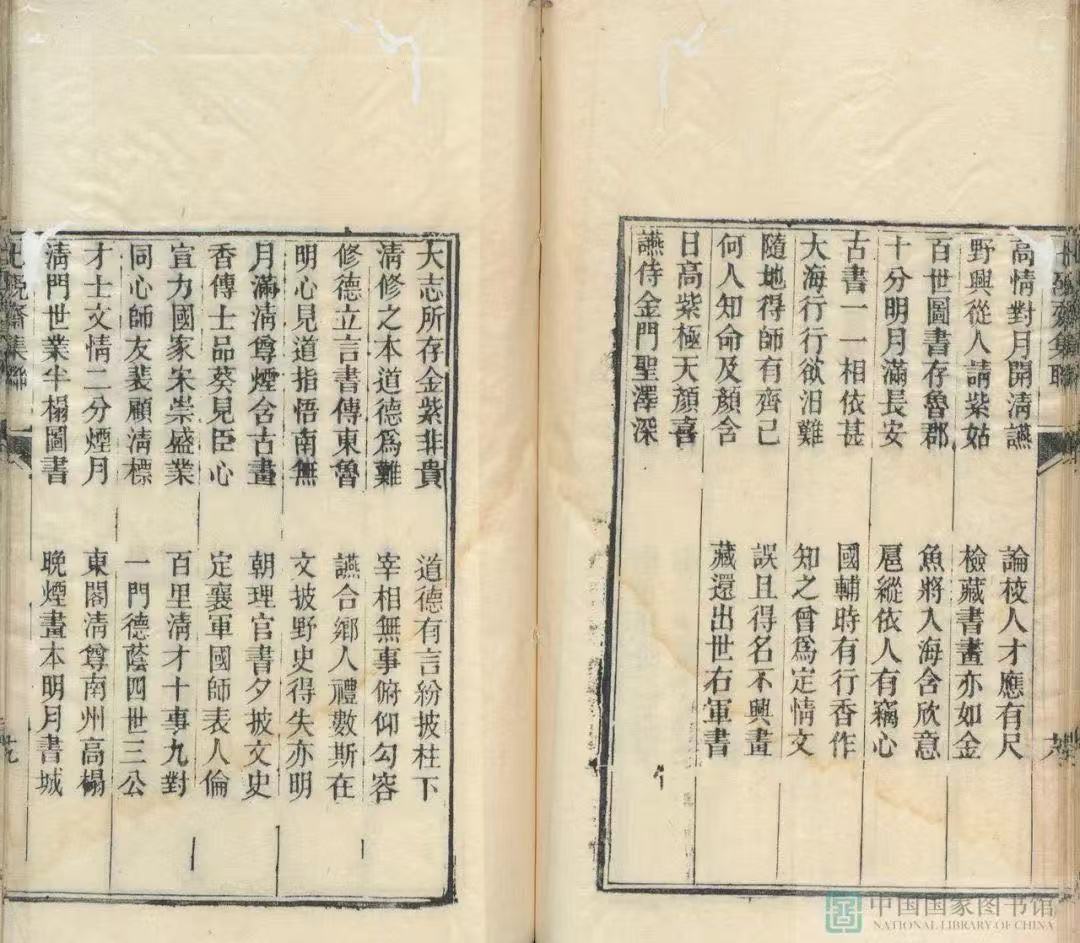 齋集聯
高情對月開清讌 論校人才應有尺
野興從人請紫姑 檢藏書畫亦如金
百世圖書存魯郡 魚將入海含欣意
十分明月滿長安 扈縱依人有竊心
古書一一相依甚 國輔時有行香作
大海行行欲汨難 知之曾爲定情文
隨地得師有齊己 誤且得名不興畫
何人知命及顏含 藏還出世右軍書
日高紫極天顏喜
讌侍金門聖澤深
大志所存金紫非貴 道德有言紛披柱下
清修之本道德爲難 宰相無事俯仰勾容
修德立言書傳東魯 讌合鄉人禮數斯在
明心見道指悟南無 文披野史得失亦明
月滿清尊煙含古畫 朝理官書夕披文史
香傳士品葵見臣心 定襄軍國師表人倫
宣力國家宋崇盛業 百里清才十事九對
同心師友裴顧清標 一門德蔭四世三公
才士文情二分煙月 東閣清尊南州高榻
清門世業半榻圖書 晚煙畫本明月書城
齋集聯
中国国家图书馆
NATIONAL LIBRARY OF CHINA